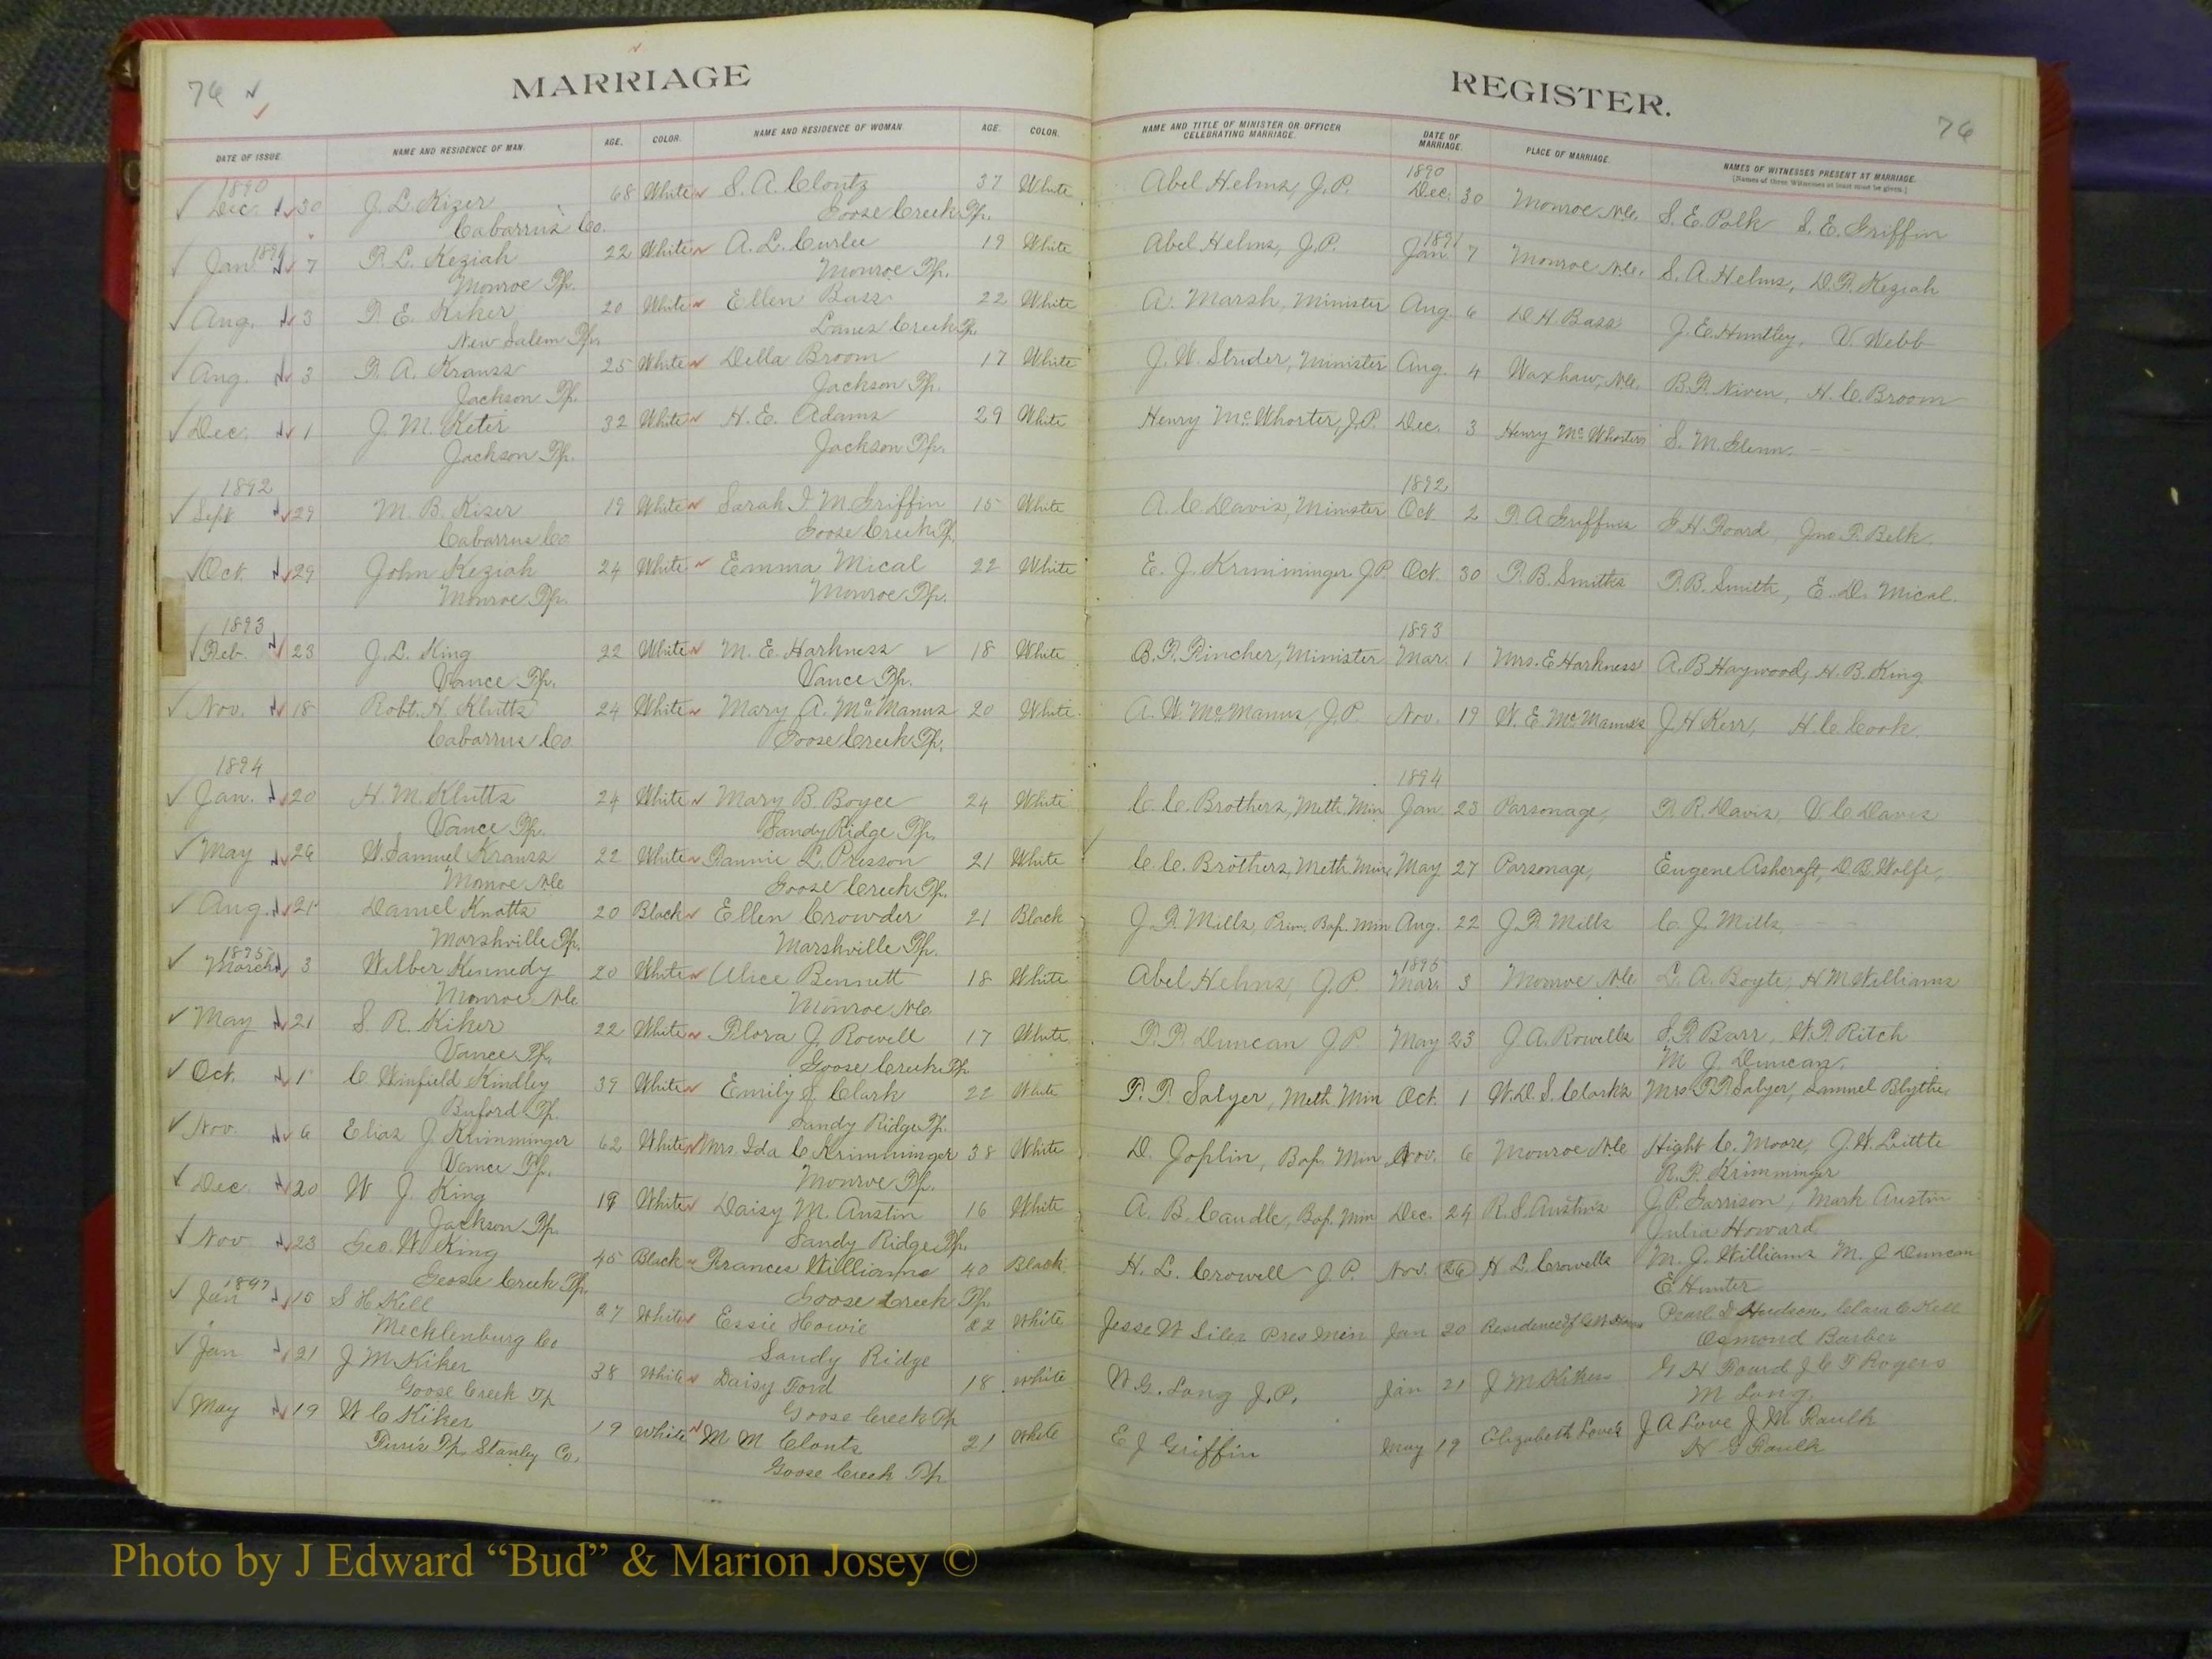 76
MARRIAGE
REGISTER.
76
DATE OF ISSUE. NAME AND RESIDENCE OF MAN. AGE. COLOR. NAME AND RESIDENCE OF WOMAN. AGE. COLOR. NAME AND TITLE OF MINISTER OR OFFICER CELEBRATING MARRIAGE. DATE OF MARRIAGE. PLACE OF MARRIAGE. NAMES OF WITNESSES PRESENT AT MARRIAGE.
[Names of three Witnesses at least must be given.]
1890 1890
Dec. 30 J. L. Kizer 68 White S. A. Clontz 37 White Abel Helms, J.P. Dec. 30 Monroe N.C. S. E. Polk S. E. Griffin
Cabarrus Co. Goose Creek Tp.
1891 1891
Jan 7 F. L. Keziah 22 White A. L. Curlee 19 White Abel Helms, J.P. Jan. 7 Monroe N.C. S. A. Helms, D. F. Keziah
Monroe Tp. Monroe Tp.
Aug. 3 F. E. Kiker 20 White Ellen Bass 22 White A. Marsh, Minister Aug 6 D H Bass J. E. Huntley, V. Webb
New Salem Tp. Lanes Creek Tp.
Aug. 3 F. A. Krauss 25 White Della Broom 17 White J. W. Strider, Minister Aug. 4 Waxhaw, N.C. B. F. Niven, H. C. Broom
Jackson Tp. Jackson Tp.
Dec. 1 J. M. Keter 32 White H. E. Adams 29 White Henry McWhorter, J.P. Dec. 3 Henry McWhorters S. M. Glenn,
Jackson Tp. Jackson Tp.
1892 1892
Sept 29 M. B. Kiser 19 White Sarah J. M. Griffin 15 White A. C. Davis, Minister Oct 2 P. A. Griffins G. H. Foard, Jno. F. Belk.
Cabarrus Co Goose Creek Tp.
Oct. 29 John Keziah 24 White Emma Mical 22 White E. J. Krimminger J.P. Oct. 30 T. B. Smiths T. B. Smith, E. D. Mical.
Monroe Tp. Monroe Tp.
1893 1893
Feb. 23 J. L. King 22 White M. E. Harkness 18 White B. F. Fincher, Minister Mar. 1 Mrs. E Harkness A. B Haywood, H. B. King
Vance Tp. Vance Tp.
Nov. 18 Robt. H Kluttz 24 White Mary A. McManus 20 White A. W. McManus, J.P. Nov. 19 W. E McManuss J. H Kerr, H. C Cook.
Cabarrus Co. Goose Creek Tp.
1894 1894
Jan. 20 H. M. Kluttz 24 White Mary B. Boyce 24 White C. C. Brothers, Meth. Min Jan. 23 Parsonage, F. R. Davis, V. C Davis
Vance Tp. Sandy Ridge Tp.
May 26 W. Samuel Krauss 22 White Fannie L. Presson 21 White C. C. Brothers, Meth Min. May 27 Parsonage, Eugene Ashcraft, D. B. Wolfe,
Monroe N.C Goose Creek Tp.
Aug. 21 Daniel Knotts 20 Black Ellen Crowder 21 Black J. F. Mills, Prim. Bap. Min Aug. 22 J. F. Mills C. J. Mills,
Marshville Tp. Marshville Tp.
1895 1895
March 3 Wilber Kennedy 20 White Alice Bennett 18 White Abel Helms, J.P. Mar. 3 Monroe N.C L. A. Boyte, H M Williams
Monroe N.C Monroe N.C.
May 21 S. R. Kiker 22 White Flora J. Rowell 17 White F. F. Duncan J.P. May 23 J. A. Rowells S. F Barr, W. F Ritch
Vance Tp. Goose Creek Tp M J. Duncan.
Oct. 1 C Winfield Kindley 39 White Emily S. Clark 22 White T. F. Salyer, Meth. Min Oct. 1 W. D. S. Clarks Mrs. T. F. Salyer, Samuel Blythe,
Buford Tp. Sandy Ridge Tp.
Nov. 6 Elias J Krimminger 62 White Mrs. Ida C Krimminger 38 White D. Joplin, Bap. Min Nov. 6 Monroe N.C Hight C. Moore, J. W. Little
Vance Tp. Monroe Tp. R. F. Krimminger
Dec. 20 W J. King 19 White Daisy M. Austin 16 White A. B. Caudle, Bap. Min Dec. 24 R. S. Austin's J. P. Garrison, Mark Austin
Jackson Tp Sandy Ridge Tp. Julia Howard
Nov 23 Geo. W King 45 Black Frances Williams 40 Black H. L. Crowell J.P. Nov. 26 H L. Crowells M. G. Williams M. J Duncan
Goose Creek Tp. Goose Creek Tp. E Hunter
1897
Jan 15 S H Kell 27 White Essie Howie 22 White Jesse W Siler Pres Min Jan 20 Residence of Pearl D Hudson, Clara C Kell
Mecklenburg Co Sandy Ridge Osmond Barber
Jan 21 J M Kiker 38 White Daisy Ford 18 White W. G. Long J.P. Jan 21 J M Kikers G H Foard J C T Rogers
Goose Creek Tp Goose Creek Tp M Long.
May 19 W C Kiker 19 White M M Clontz 21 White E J Griffin May 19 Elizabeth Love's J A Love J M Faulk
Tp. Stanley Co. Goose Creek Tp Faulk
Photo by J Edward “Bud” & Marion Josey ©